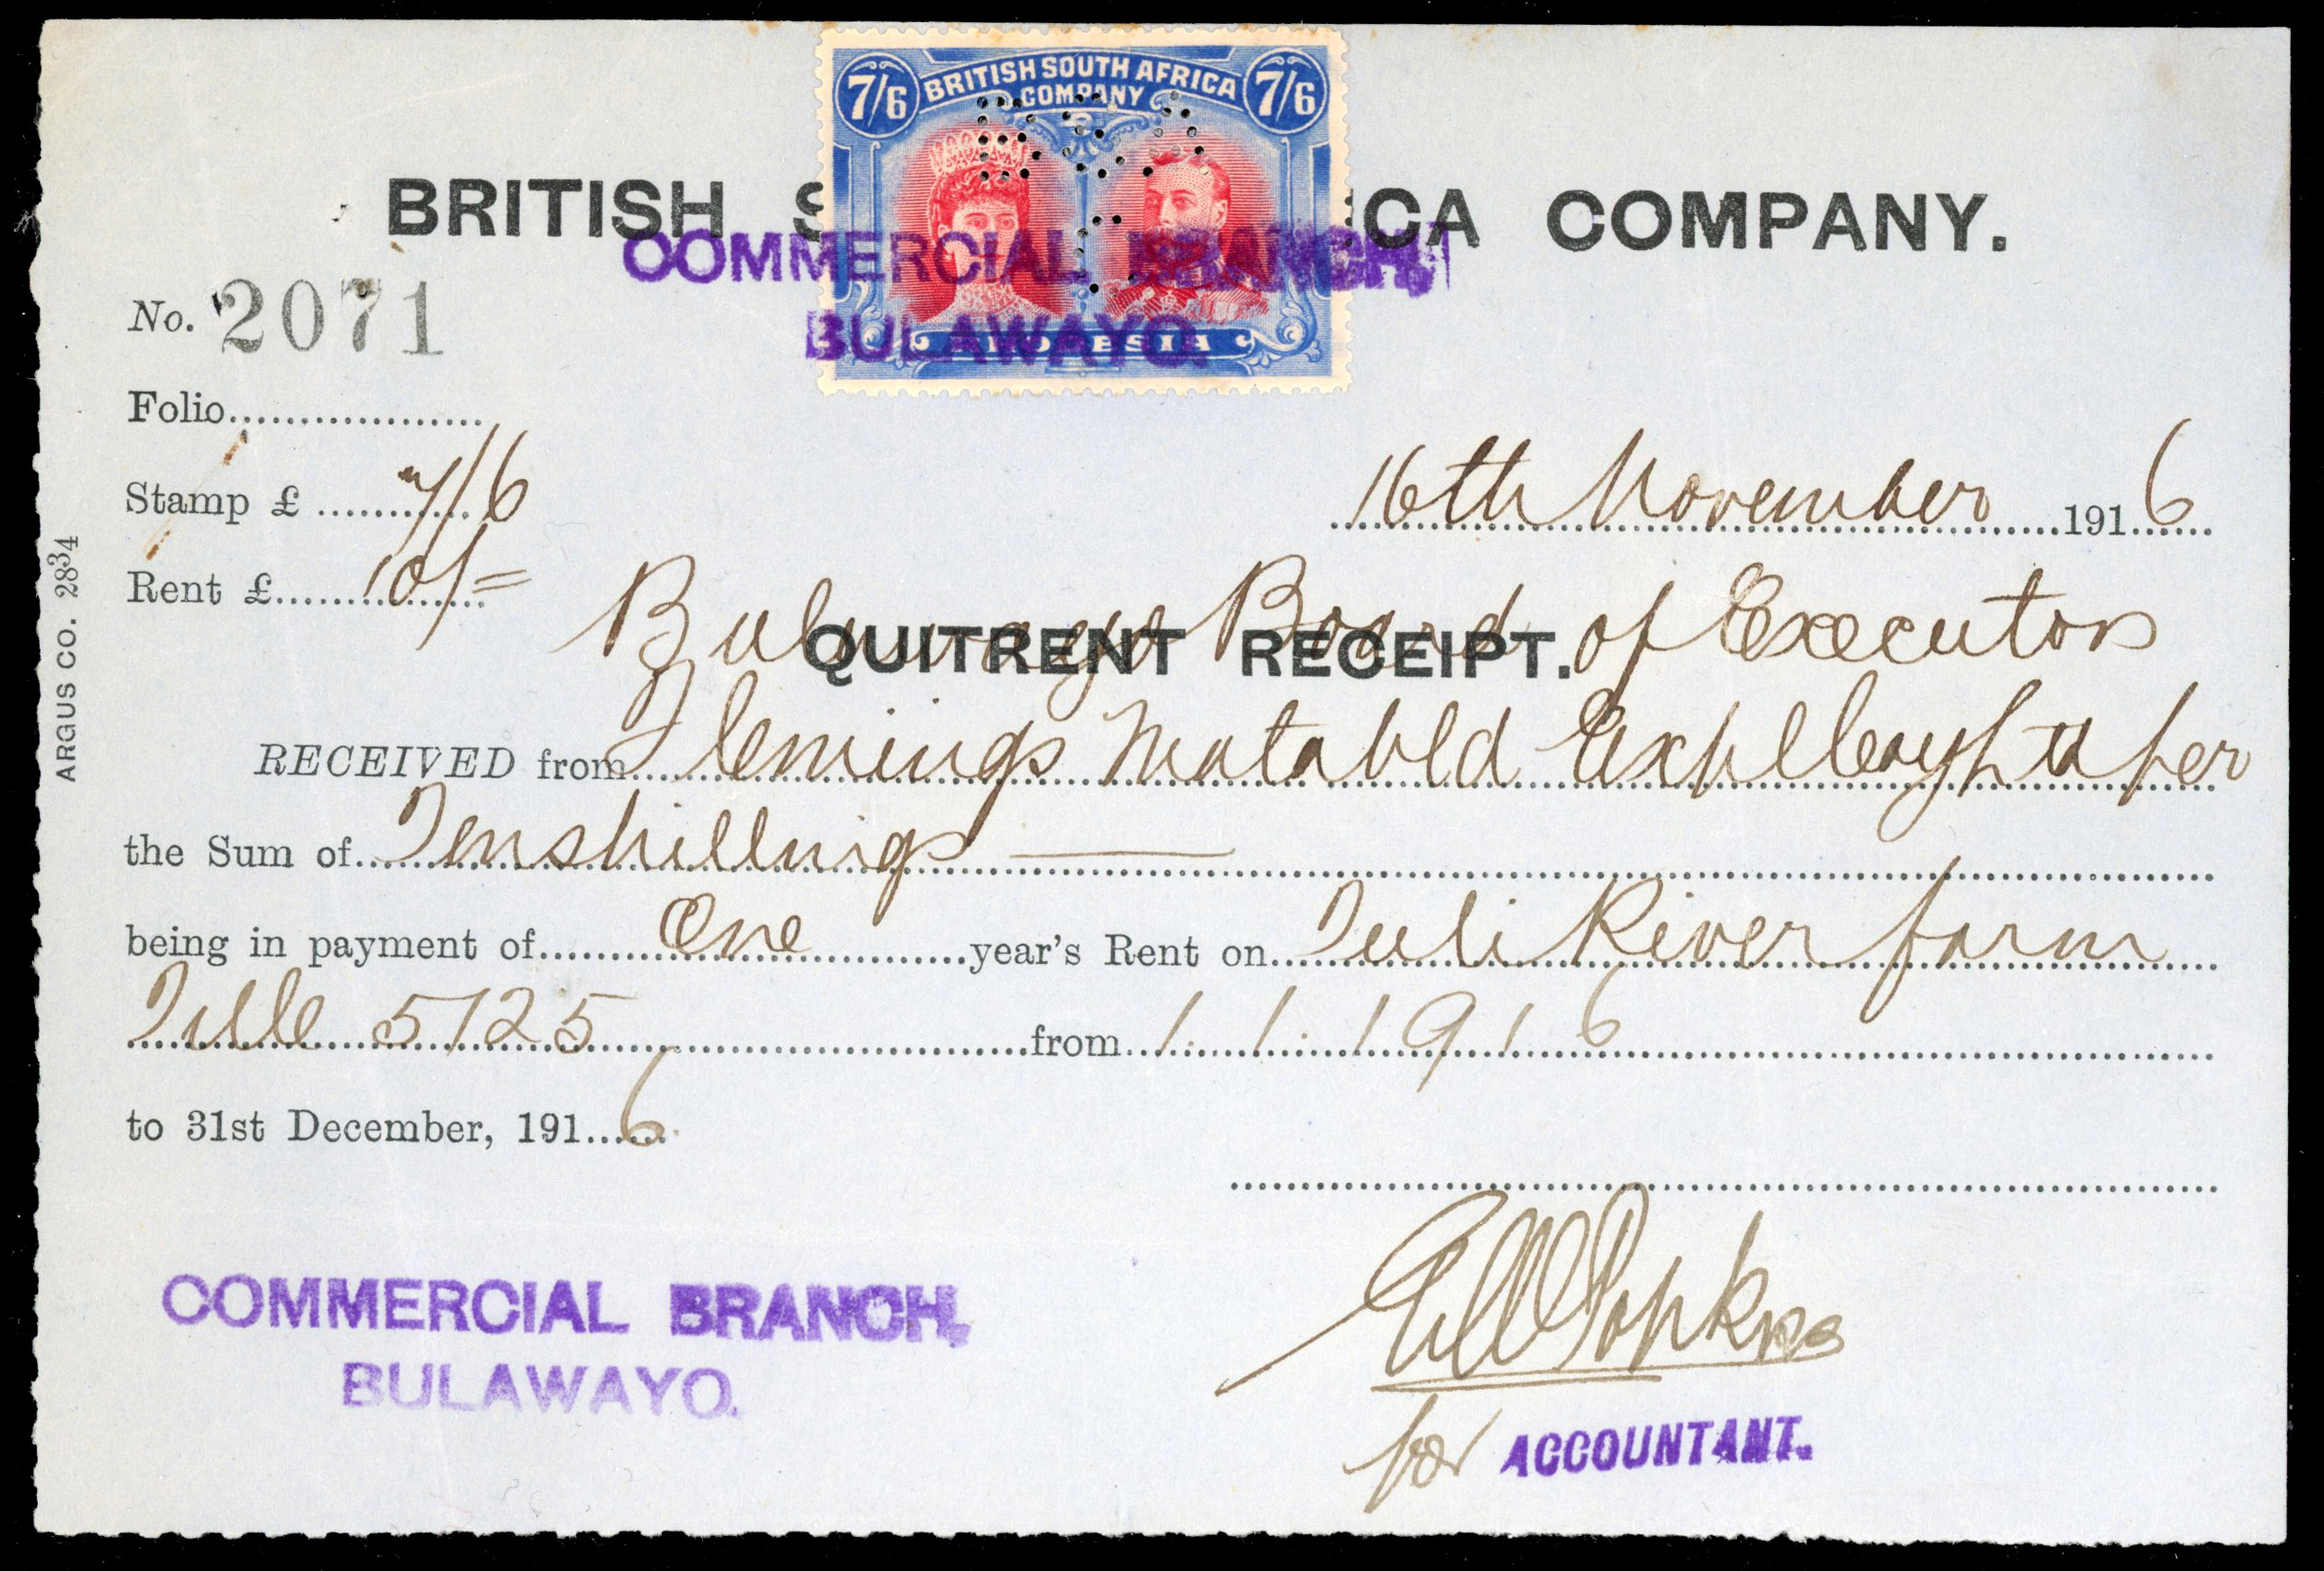 7/6 BRITISH SOUTH AFRICA 7/6
COMPANY
BRITISH S CA COMPANY.
COMMERCIAL BRANCH,
BULAWAYO.
RHODESIA
No. 2071
Folio
Stamp £ 7/6
16th November 1916
Rent £ 10/=
Bulawayo Board of Executors
QUITRENT RECEIPT.
RECEIVED from Flemings Matabld Expl per
the Sum of Ten shillings
being in payment of One year's Rent on Tuli River farm
Title 5725 from 1.1.1916
to 31st December, 1916
COMMERCIAL BRANCH,
BULAWAYO.
for ACCOUNTANT.
ARGUS CO. 2834